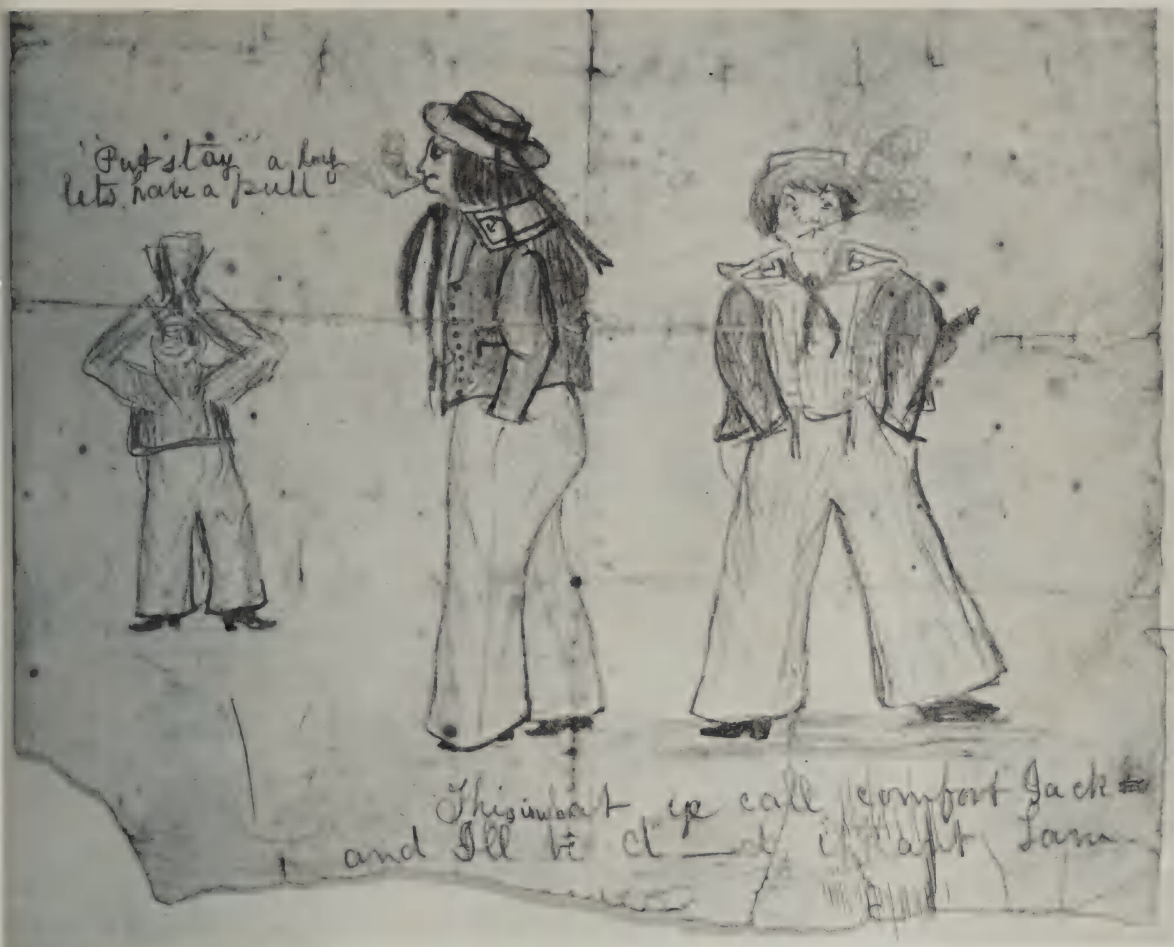 "Put stay" a bit
lets have a pull
This is what ye call comfort Jack
and Ill be d—d if aint Sam